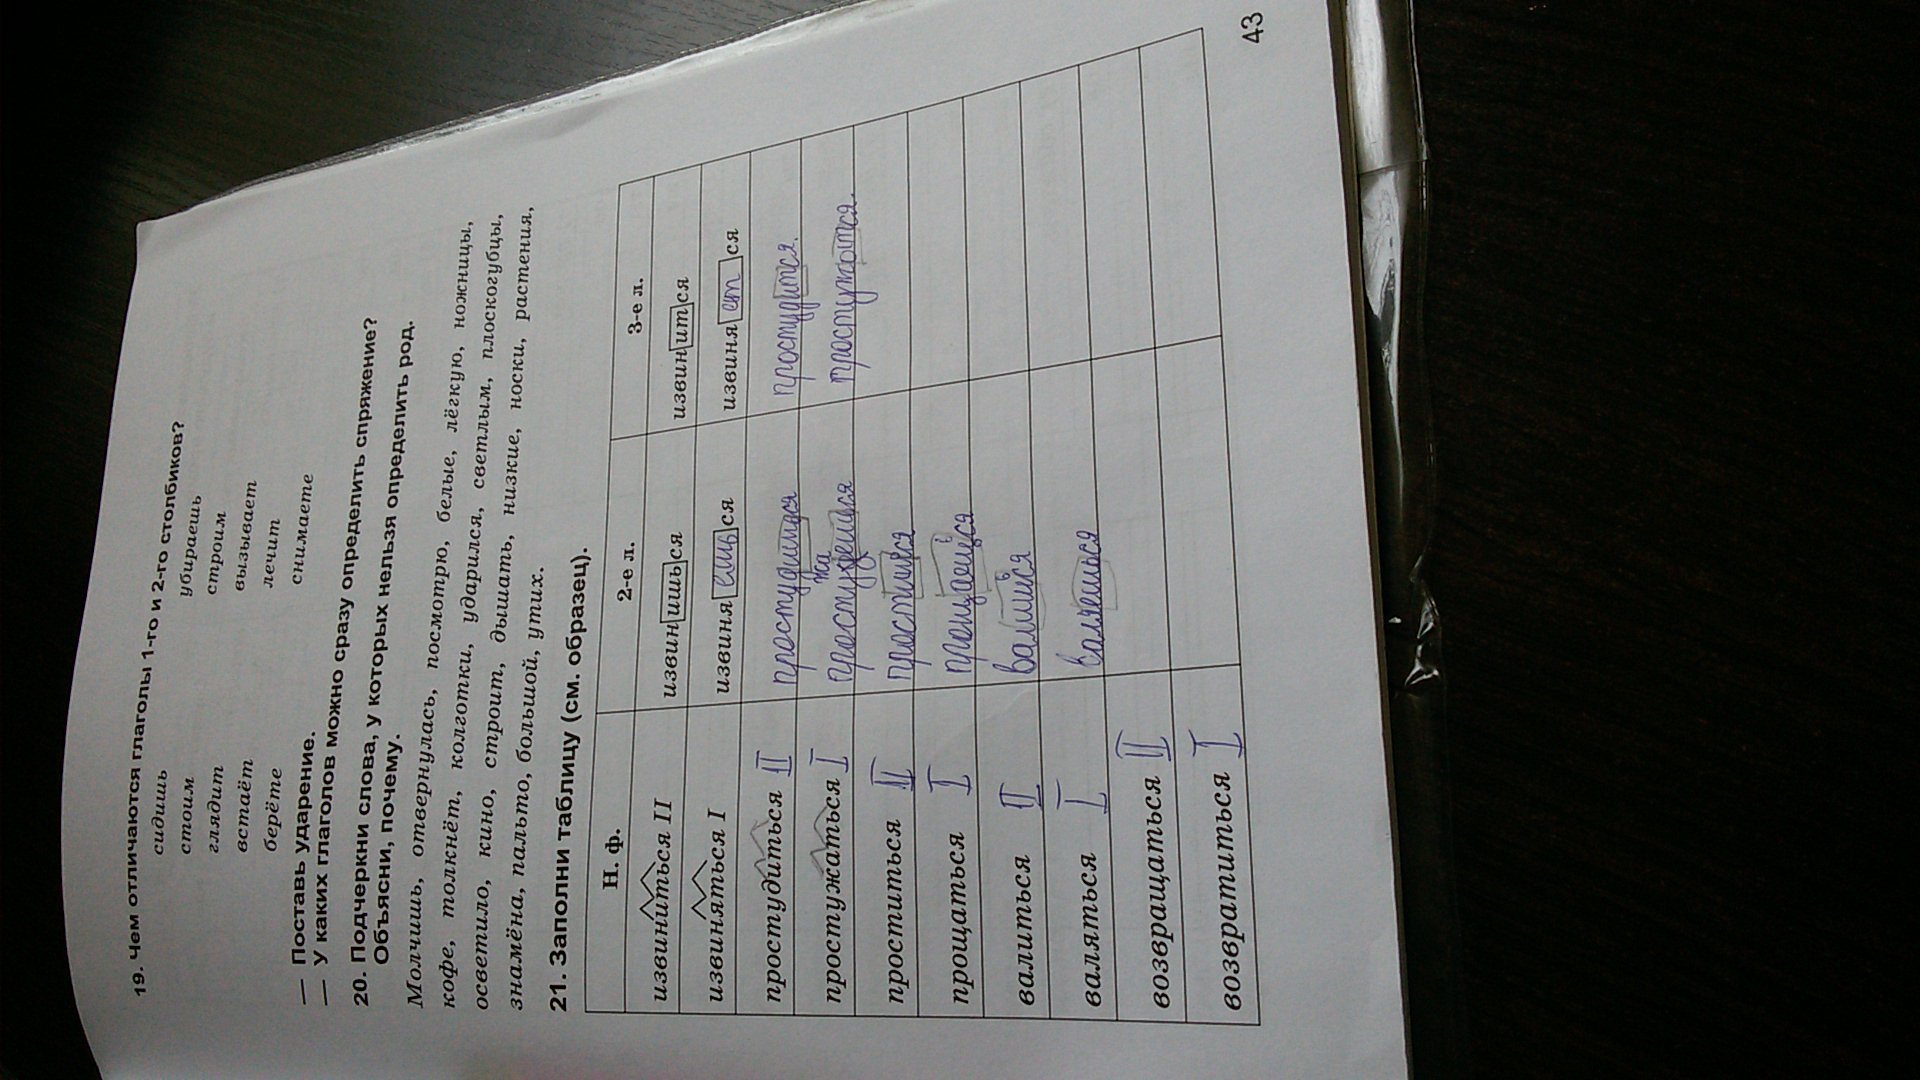 19. Чем отличаются глаголы 1-го и 2-го столбиков?
сидишь убираешь
стоим строим
глядит вызывает
встаёт лечит
берёте снимаете
— Поставь ударение.
— У каких глаголов можно сразу определить спряжение?
20. Подчеркни слова, у которых нельзя определить род.
Объясни, почему.
Молчишь, отвернулась, посмотрю, белые, лёгкую, ножницы,
кофе, толкнёт, колготки, ударился, светлым, плоскогубцы,
осветило, кино, строит, дышать, низкие, носки, растения,
знамёна, пальто, большой, утих.
21. Заполни таблицу (см. образец).
Н. ф. 2-е л. 3-е л.
извиниться II извинишься извинится
извиняться I извиняешься извиняется
простудиться II простудишся простудится.
простужаться I
проститься II простишся
прощаться I прощаешся
валиться II
валяться I
возвращаться II
возвратиться I
43